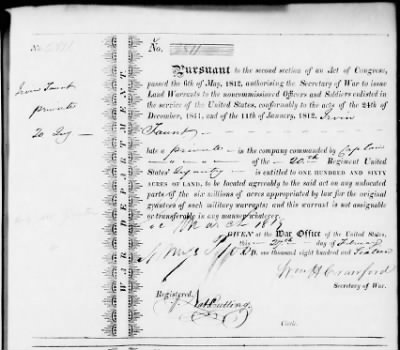 No. 811
Pursuant to the second section of an Act of Congress,
passed the 6th of May, 1812, authorising the Secretary of War to issue
Land Warrants to the noncommissioned Officers and Soldiers enlisted in
the service of the United States, conformably to the acts of the 24th of
December, 1811, and of the 11th of January, 1812, Irvin
Taunt
late a private in the company commanded by Cap
of the 20th Regiment United
States' Infantry is entitled to ONE HUNDRED AND SIXTY
ACRES OF LAND, to be located agreeably to the said act on any unlocated
parts of the six millions of acres appropriated by law for the original
grantees of such military warrants; and this warrant is not assignable
or transferable in any manner whatever.
GIVEN at the War Office of the United States,
this 27th day of February
one thousand eight hundred and Sixteen
Wm H Crawford
Secretary of War.
Registered,
Cutting
Clerk.
WAR DEPARTMENT.
Irvin Taunt
private
20 Inf